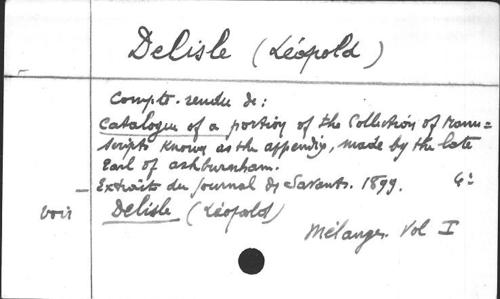 Delisle (Léopold)
Compte-rendu de:
Catalogue of a portion of the Collection of Manu=
scripts known as the appendix, made by the late
Earl of Ashburnham.
— Extraits du Journal des Savants. 1899. 4º
voir Delisle (Léopold)
Mélanges. Vol I